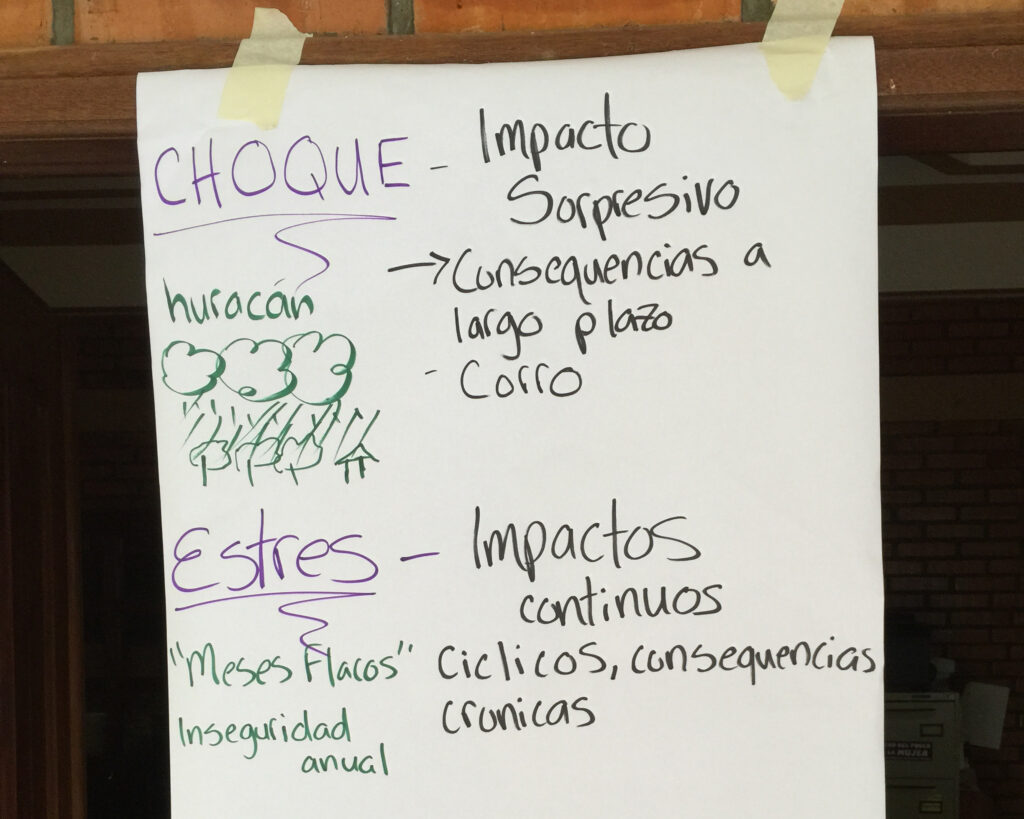 CHOQUE - Impacto
Sorpresivo
→ Consequencias a
largo plazo
- Corro
huracán
Estres - Impactos
continuos
"Meses Flacos" Ciclicos, consequencias
cronicas
Inseguridad
anual
MUJER